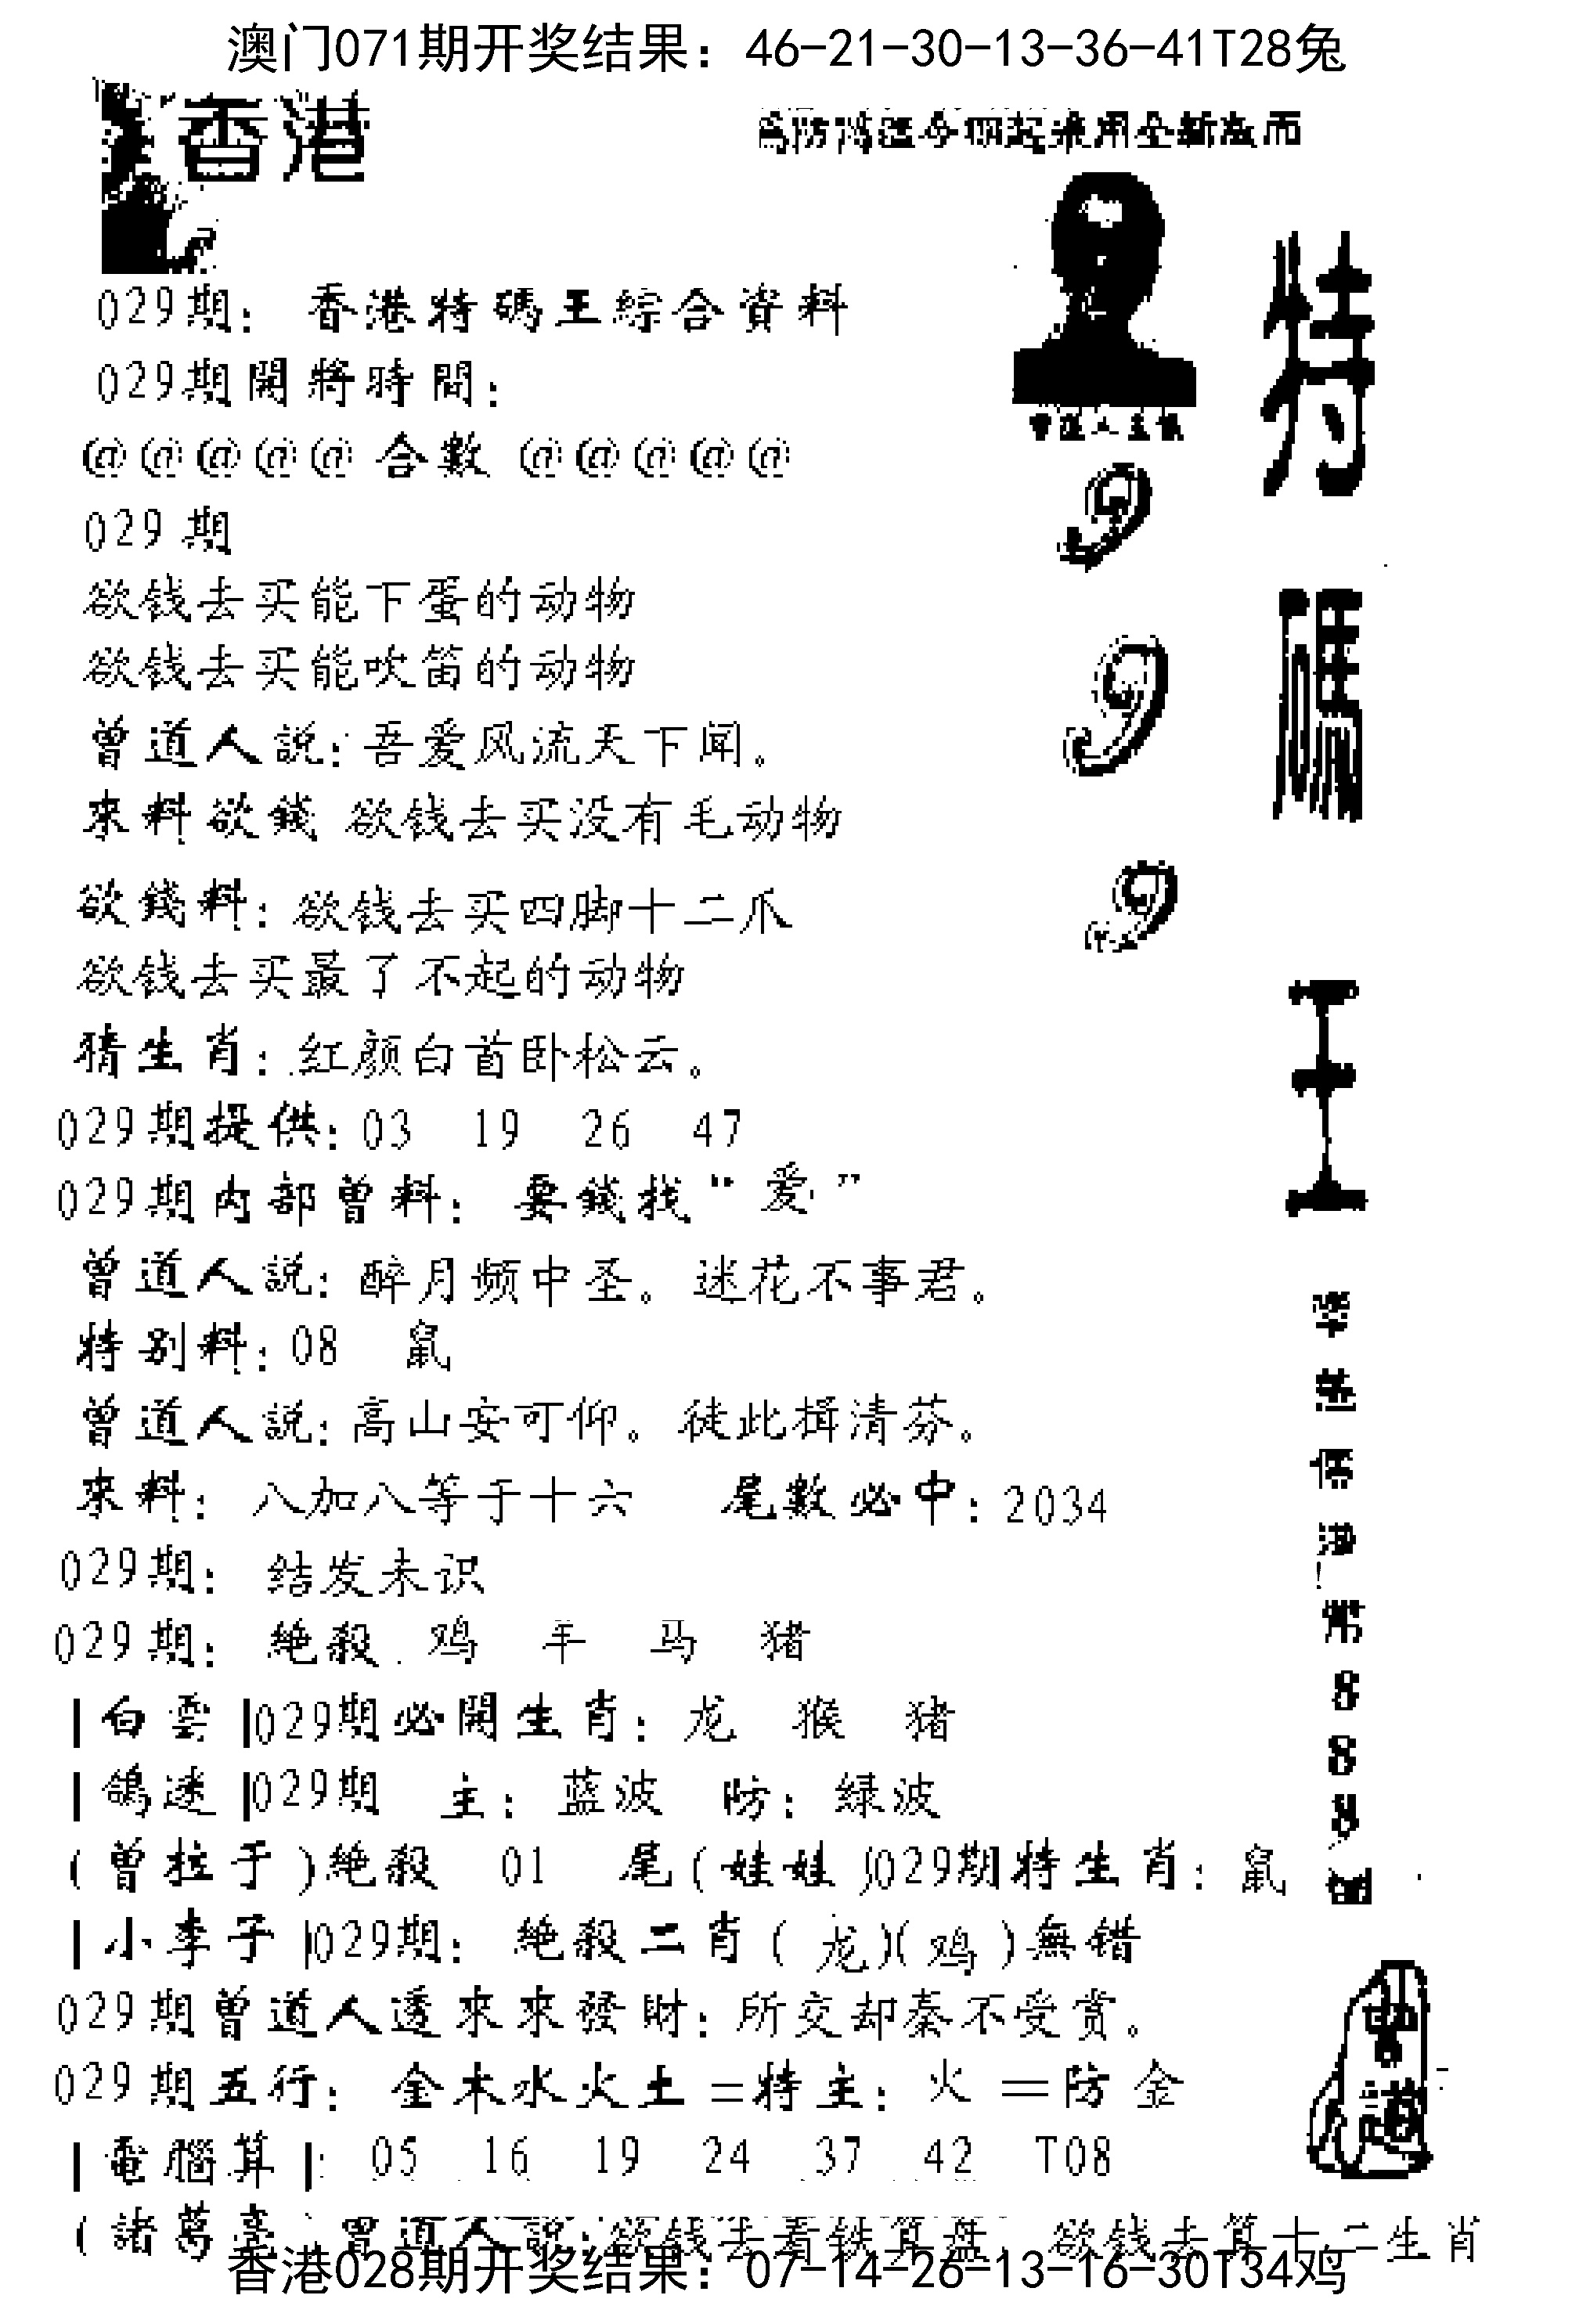 澳门071期开奖结果：46-21-30-13-36-41T28兔
香港
029期：香港特碼王綜合資料
029期開將時間：
@@@@@合數@@@@@
029期
欲钱去买能下蛋的动物
欲钱去买能吹笛的动物
曾道人説：吾爱风流天下闻。
來料欲錢 欲钱去买没有毛动物
欲錢料：欲钱去买四脚十二爪
欲钱去买最了不起的动物
猜生肖：红颜白首卧松云。
029期提供：03 19 26 47
029期内部曾料：要錢找“爱”
曾道人説：醉月频中圣。迷花不事君。
特别料：08 鼠
曾道人説：高山安可仰。徒此揖清芬。
來料：八加八等于十六 尾數必中：2034
029期：结发未识
029期：绝殺 鸡 羊 马 猪
|白雲|029期必開生肖：龙 猴 猪
|鴿迷|029期 主：蓝波 防：绿波
(曾拉于)绝殺 01 尾(娃娃)029期特生肖：鼠
|小李子|029期：绝殺二肖(龙)(鸡)無错
029期曾道人透來來發財：所交却秦不受赏。
029期五行：金木水火土=特主：火=防金
|電腦算|：05 16 19 24 37 42 T08
(諸葛亮 曾道人説：欲钱去看铁算盘，欲钱去算十二生肖
香港028期开奖结果：07-14-26-13-16-30T34鸡
特碼王
999
888